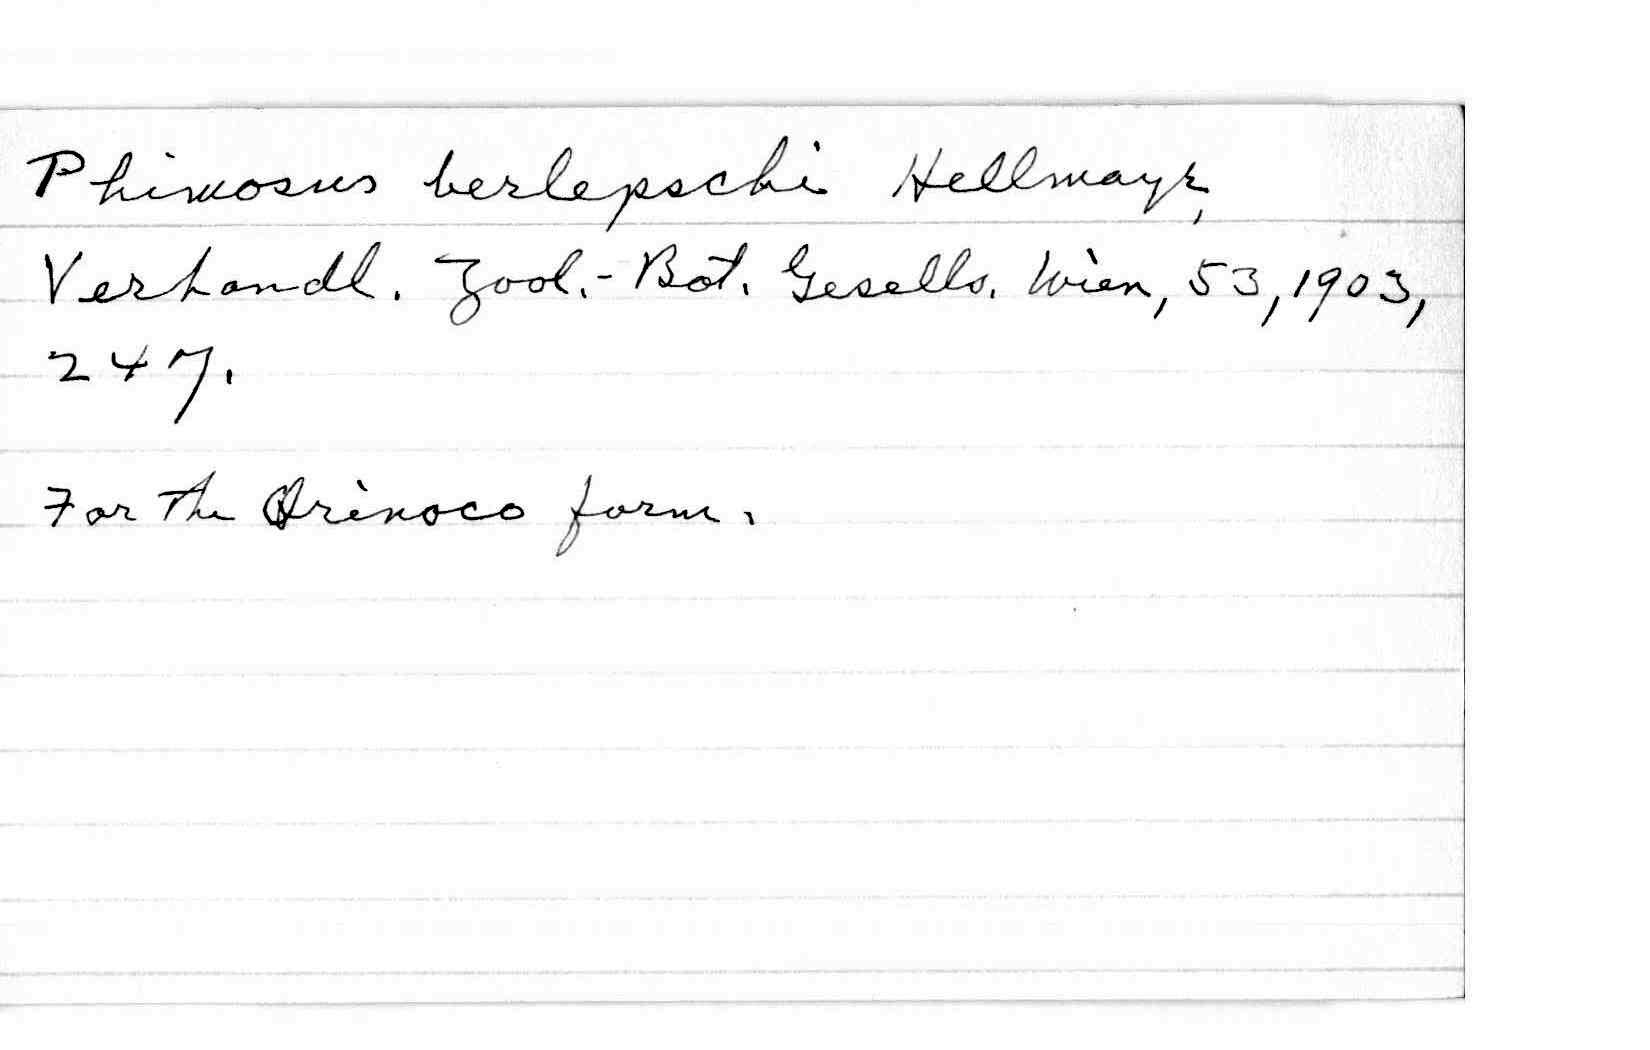 Phimosus berlepschi Hellmayr,
Verhandl. Zool.-Bot. Gesells. Wien, 53, 1903,
247.
For the Orinoco form.